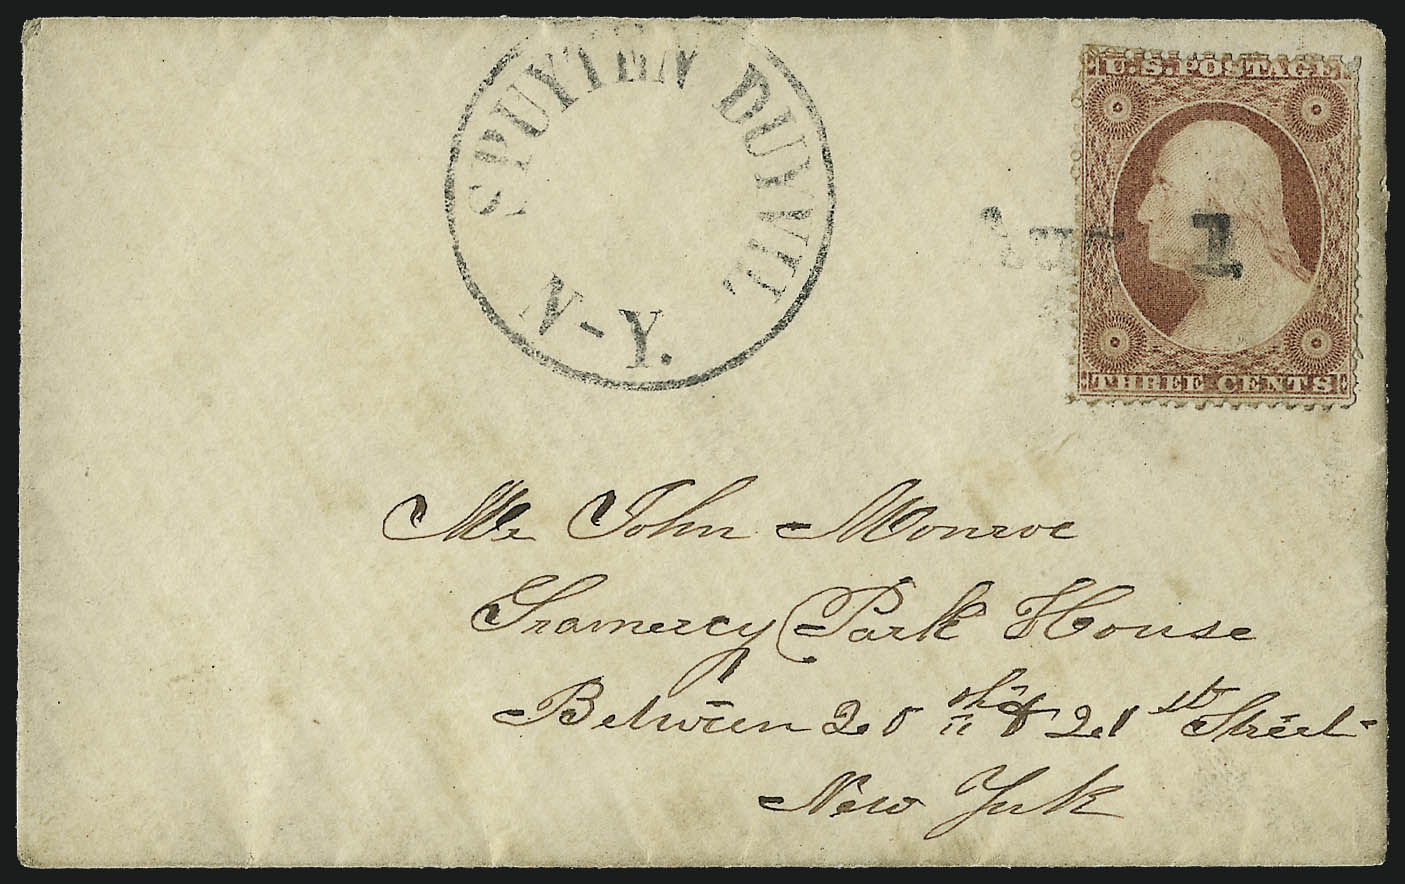 SPUYTEN DUYVIL
N-Y.
U.S. POSTAGE
1
THREE CENTS
Mr John Monroe
Gramercy Park House
Between 20th & 21st Street
New York